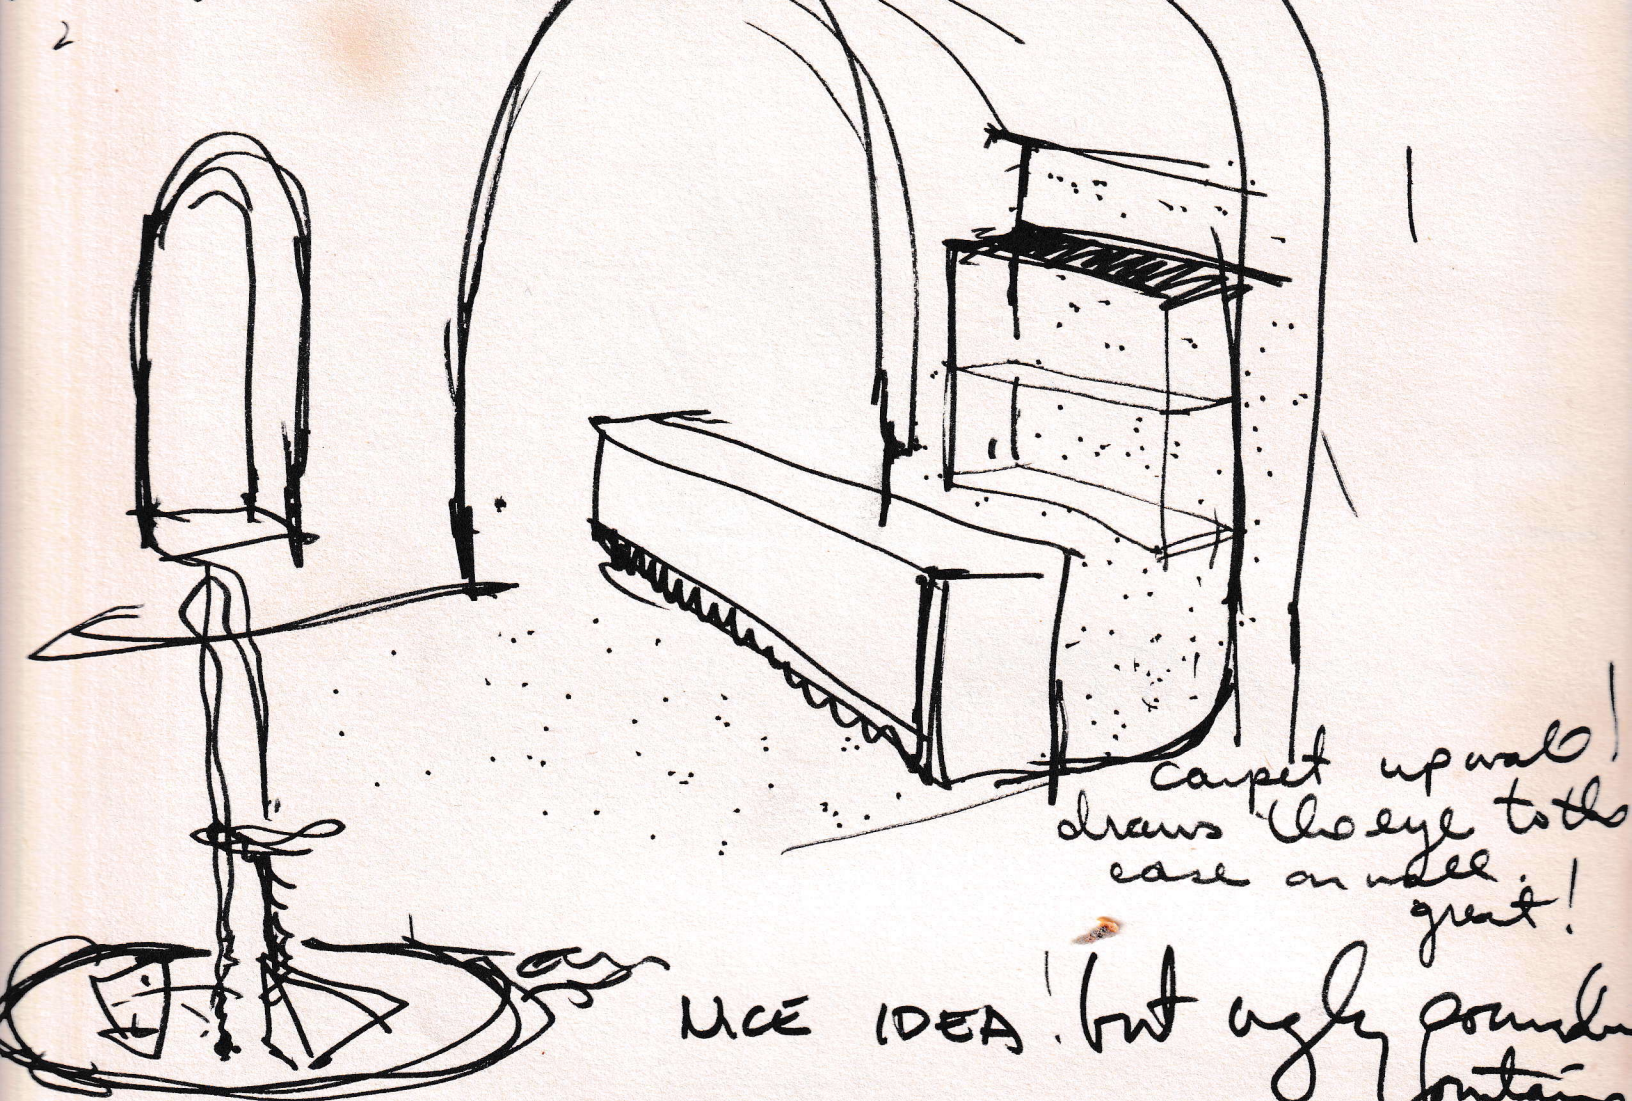 2
carpet up wall!
draws the eye to the
case on wall.
great!
NICE IDEA! but ugly
fountain